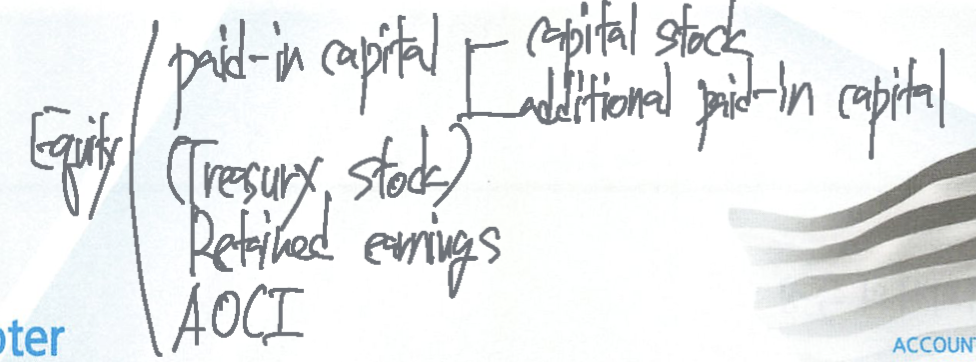 paid-in capital
capital stock
additional paid-in capital
Equity
(Treasury stock)
Retained earnings
AOCI
oter
ACCOUN